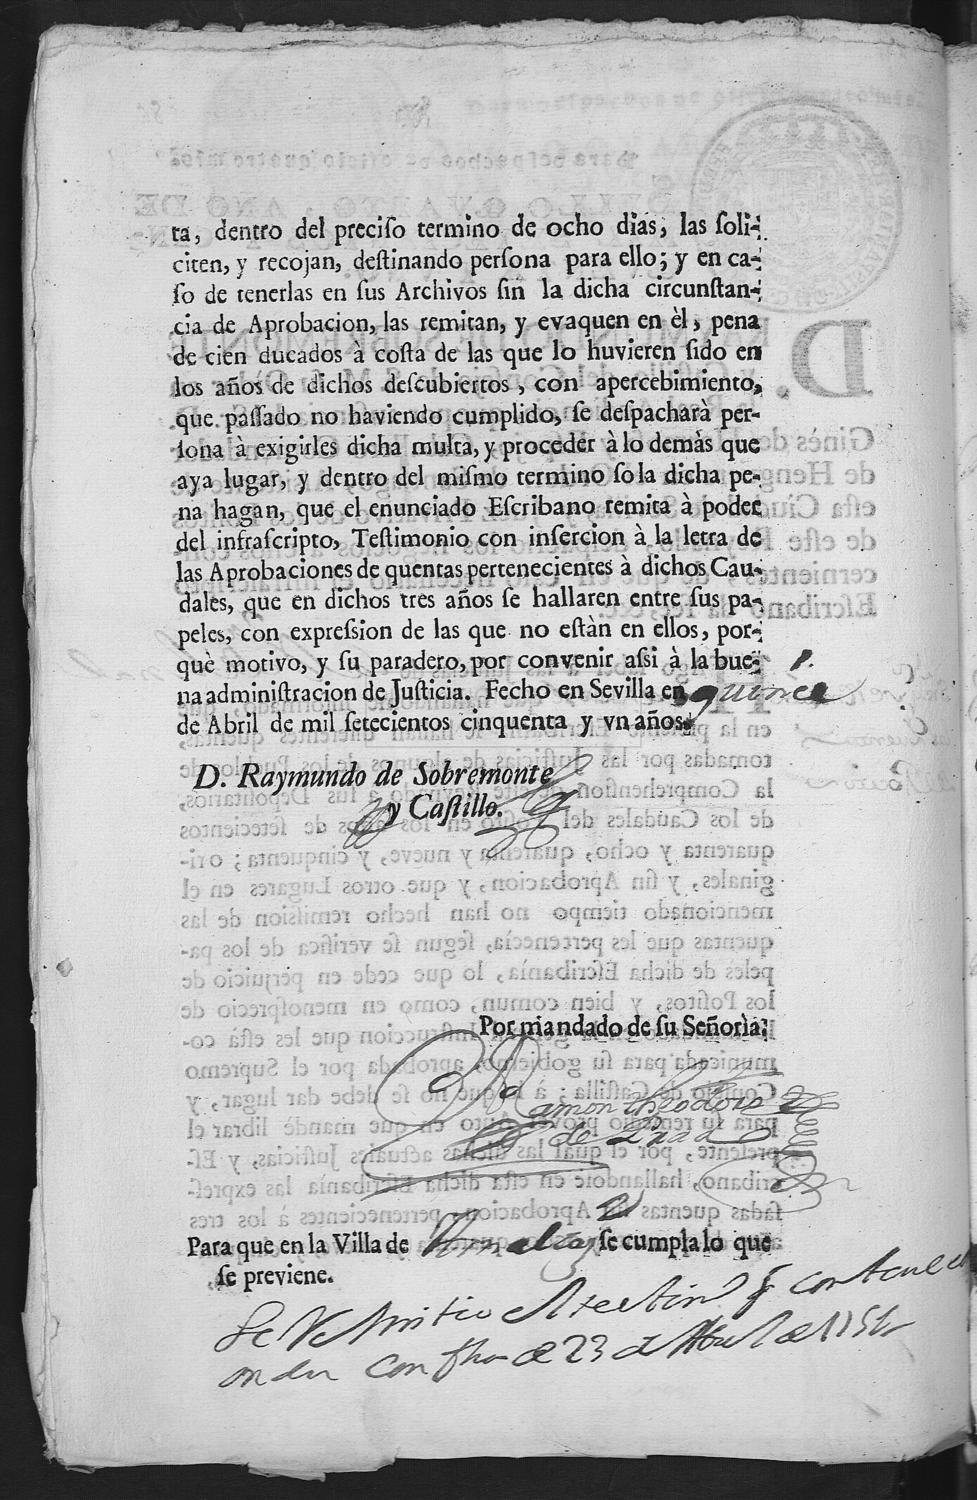 ta, dentro del preciſo termino de ocho dias, las ſoli-
citen, y recojan, deſtinando perſona para ello; y en ca-
ſo de tenerlas en ſus Archivos ſin la dicha circunſtan-
cia de Aprobacion, las remitan, y evaquen en èl, pena
de cien ducados à coſta de las que lo huvieren ſido en
los años de dichos deſcubiertos, con apercebimiento,
que paſſado no haviendo cumplido, ſe deſpacharà per-
ſona à exigirles dicha multa, y proceder à lo demàs que
aya lugar, y dentro del miſmo termino ſo la dicha pe-
na hagan, que el enunciado Eſcribano remita à poder
del infraſcripto, Teſtimonio con inſercion à la letra de
las Aprobaciones de quentas pertenecientes à dichos Cau-
dales, que en dichos tres años ſe hallaren entre ſus pa-
peles, con expreſsion de las que no eſtàn en ellos, por-
què motivo, y ſu paradero, por convenir aſsi à la bue-
na adminiſtracion de Juſticia. Fecho en Sevilla en quince
de Abril de mil ſetecientos cinquenta y vn años.
D. Raymundo de Sobremonte
y Caſtillo.
Por mandado de ſu Señorìa;
Dn Ramon Theodoro
de
Para que en la Villa de ſe cumpla lo que
ſe previene.
Se Remitio el
con fha de 23 de Abril de 1751